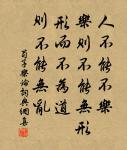 人不能不樂
樂則不能無形
形而不為道
則不能無亂
荀子樂論詞典網集